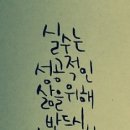 실수는
성공적인
삶을 위해
반드시